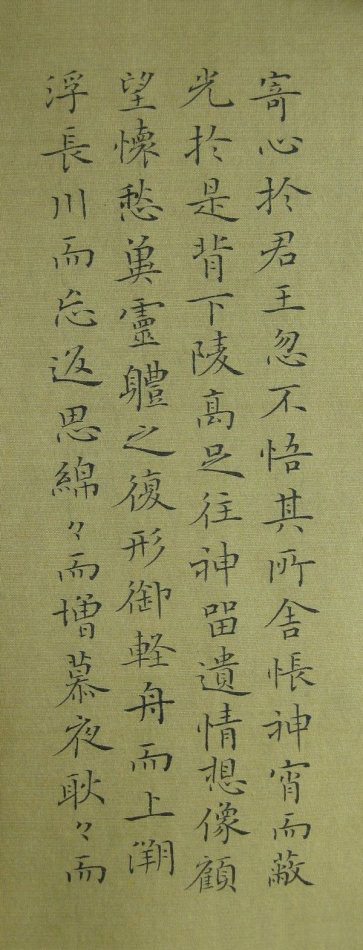 寄心於君王忽不悟其所舎悵神宵而蔽
光於是背下陵高足往神留遺情想像顧
望懐愁兾靈軆之復形御軽舟而上溯
浮長川而忘返思綿々而増慕夜耿々而